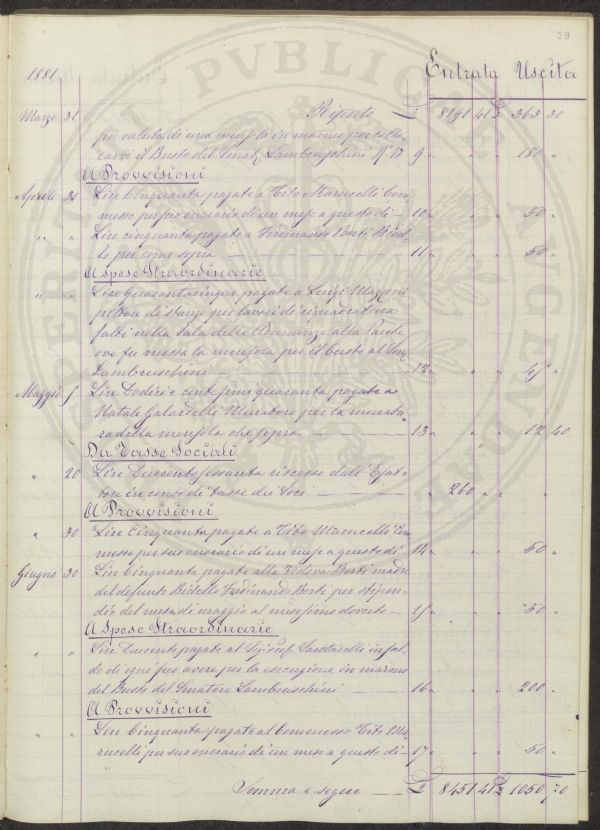 29
1881 Entrata Uscita
Marzo 31 Riporto £ 8191 41 £ 363 30
per valuta di una mensola in marmo per collo
carvi il Busto del Senat. Lambruschini N° 17 9 " " " 180 "
A Provvisioni
Aprile 30 Lire Cinquanta pagate a Tito Marucelli Com
messo per suo onorario di un mese a questo dì — 10 " " " 50 "
" " Lire cinquanta pagate a Ferdinando Borti Bidel
lo per come sopra — 11 " " " 50 "
A Spese Straordinarie
" " Lire Quarantacinque pagate a Luigi Mazzoni
pittore di stanze per lavori di
fatti nella Sala delle Adunanze alla Parete
ove fu messa la mensola per il busto al Sen.
Lambruschini — 12 " " " 45 "
Maggio 5 Lire Dodici e centesimi quaranta pagate a
Natale Galardelli Muratore per la murata
ra della mensola che sopra — 13 " " " 12 40
Da Tasse Sociali
" 20 Lire Duecentosessanta riscosse dall' Esat
tore in conto di tasse dei Soci — " 260 " " "
A Provvisioni
" 30 Lire Cinquanta pagate a Tito Marucelli Com
messo per suo onorario di un mese a questo dì 14 " " " 50 "
Giugno 30 Lire Cinquanta pagate alla Vedova Borti madre
del defunto Bidello Ferdinando Borti per stipen
dio del mese di maggio al medesimo dovuto — 15 " " " 50 "
A Spese Straordinarie
" " Lire Duecento pagate al Sig. Giusp. Santarelli in sal
do di ogni suo avere per la esecuzione in marmo
del Busto del Senatore Lambruschini — 16 " " " 200 "
A Provvisioni
" " Lire Cinquanta pagate al Commesso Tito Ma
rucelli per suo onorario di un mese a questo dì — 17 " " " 50 "
Somma e segue — £ 8451 41 £ 1050 70